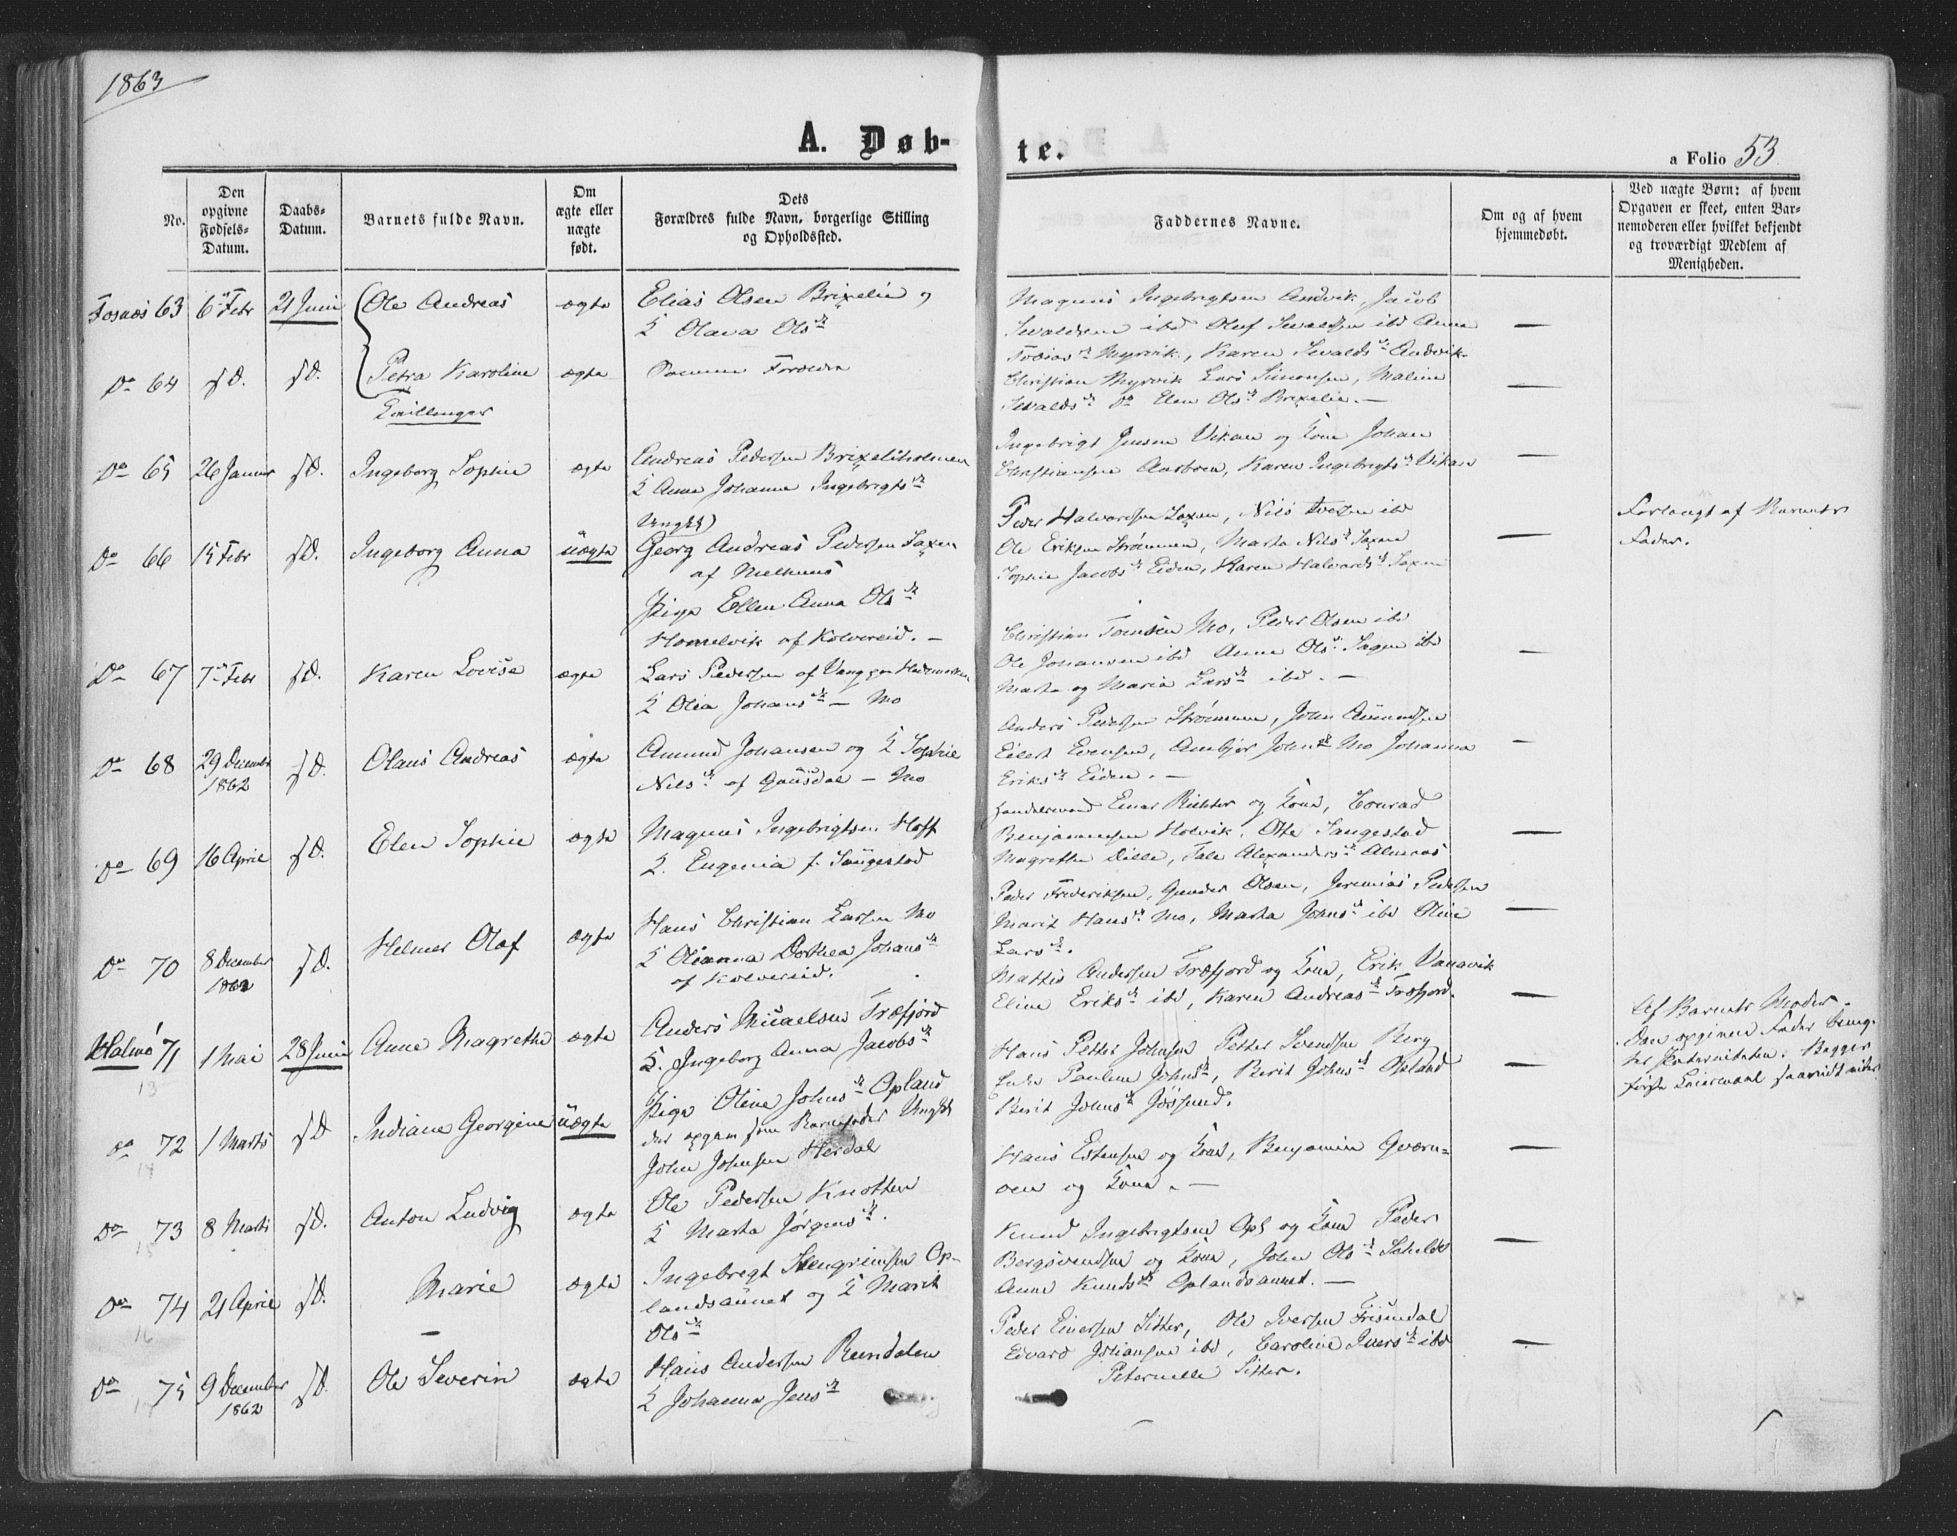 1863
A. Døb-
te.
a Folio 53
No.
Den opgivne Fødsels-Datum.
Daabs-Datum.
Barnets fulde Navn.
Om ægte eller uægte født.
Dets Forældres fulde Navn, borgerlige Stilling og Opholdssted.
Faddernes Navne.
Om og af hvem hjemmedøbt.
Ved uægte Børn: af hvem Opgaven er skeet, enten Barnemoderen eller hvilket bekjendt og troværdigt Medlem af Menigheden.
Fosnæs 63 6 Febr 21 Juni Ole Andreas ægte Elias Olsen Brixelie og
K Olava Ols
Magnus Ingebrigtsen Andvik, Jacob
Sevaldsen ibd Oluf Sevaldsen ibd Anna
Tobias Myrvik, Karen Sevalds Andvik
Do 64 s.D. s.D. Petra Karoline ægte Samme Forældre
Tvillinger
Christian Myrvik Lars Simonsen, Maline
Sevalds Do Elen Ols Brixelie. —
Do 65 26 Januar s.D. Ingeborg Sophie ægte Andreas Pedersen Brixeliholmen
K Anna Johanna Ingebrigts
Ingebrigt Jensen Vikan og Kone Johan
Christiansen, Karen Ingebrigts Vikan —
Do 66 15 Febr s.D. Ingeborg Anna uægte Ungkl)
Georg Andreas Pedersen Saxen
af Melhuus
Pige Ellen Anna Ols
Homelvik af Kolvereid. —
Peder Halvorsen Saxen, Nils Iversen ibd
Ole Eriksen Strømmen, Marta Nils Saxen
Sophie Jacobs Eiden, Karen Halvords Saxen —
Forlangt af Barnets
Fader.
Do 67 7 Febr s.D. Karen Lovise ægte Lars Pedersen af Vang
K Olia Johans — Mo
Christian Mo, Peder Olsen ibd
Ole Johansen ibd Anna Ols ibd
Marta og Maria Lars ibd. —
Do 68 29 December 1862 s.D. Olaus Andreas ægte Amund Johansen og K Sophie
Nils af Gausdal — Mo
Anders Pedersen Strømmen, John Amundsen
Eilert Evensen, John Mo Johanna
Eriks Eiden. —
Do 69 16 April s.D. Elen Sophie ægte Magnus Ingebrigtsen Hoff
K. Eugenia f. Saugestad
Handelsmand Einar Richter og Kone, Conrad
Benjaminsen Holvik, Otte Saugestad
Magrethe Dille, Tale Alexanders Almaas —
Do 70 8 December 1862 s.D. Helmer Olaf ægte Hans Christian Larsen Mo
K Olianna Dorthea Johans
af Kolvereid.
Peder Frederiksen, Gunder Olsen, Jeremias Pedersen
Marit Hans Mo, Marta Johns ibd Oline
Lars. —
Halmø 71 1 Mai 28 Juni Anne Magrethe ægte Anders Micaelsen Træfjord
K. Ingeborg Anna Jacobs
Mattis Andersen Træfjord og Kone, Erik Vanavik
Eline Eriks ibd, Karen Andreas Træfjord. —
13
Do 72 1 Marts s.D Indiane Georgine uægte Pige Oline Johns Opland
der opgav som Barnefader Ungkl
John Johnsen Herdal
Hans Petter Johnsen Petter Svendsen Berg
Pauline Johns, Berit Johns Opland
Berit Johns Jøssund. —
Af Barnets Moder.
Den opgivne Fader
ter Paterniteten. Begges
første Leiermaal saavidt vides
14
Do 73 8 Marts s.D. Anton Ludvig ægte Ole Pedersen Knotten
K Marta Jørgens.
Hans Estensen og Kone, Benjamin Qværn-
oen og Kone. —
15
Do 74 21 April s.D. Marie ægte Ingebregt Stengrimsen Op-
landsaunet og K Marit
Ols
Knud Ingebrigtsen Opl og Kone Peder
Bergsvendsen og Kone, John Ols
Anne Knuds Oplandsaunet. —
16
Do 75 9 December 1862 s.D. Ole Severin ægte Hans Andersen Reindalen
K Johanna Jens
Peder Einersen Sitter, Ole Iversen
Edvard Johansen ibd, Caroline Ivers ibd
Peternelle Sitter. —